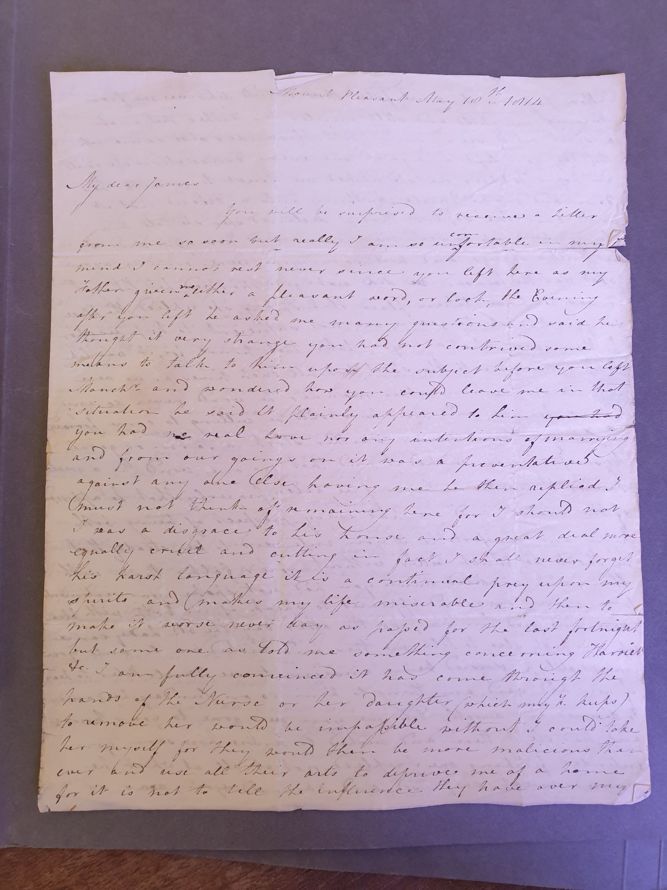 Mount Pleasant May 18th 1814
My dear James
You will be surprised to receive a letter
from me so soon but really I am so uncomfortable in my
mind I cannot rest never since you left here as my
Father given me either a pleasant word, or look, the Evening
after you left he asked me many questions and said he
thought it very strange you had not contrived some
means to talk to him upon the subject before you left
Manchr and wondered how you could leave me in that
situation he said it plainly appeared to him you had
you had no real love nor any intentions of marrying
and from our goings on it was a preventative
against any one Else having me he then replied I
must not think of remaining here for I should not
I was a disgrace to his house and a great deal more
equally cruel and cutting in fact I shall never forget
his harsh language it is a continual prey upon my
spirits and makes my life miserable and then to
make it worse never day as passed for the last fortnight
but some one as told me something concerning Harriet
&c I am fully convinced it has come through the
hands of the Nurse or her daughter (which my keeps)
to remove her would be impossible without I could take
her myself for they would then be more malicious than
ever and use all their arts to deprive me of a home
for it is not to tell the influence they have over my